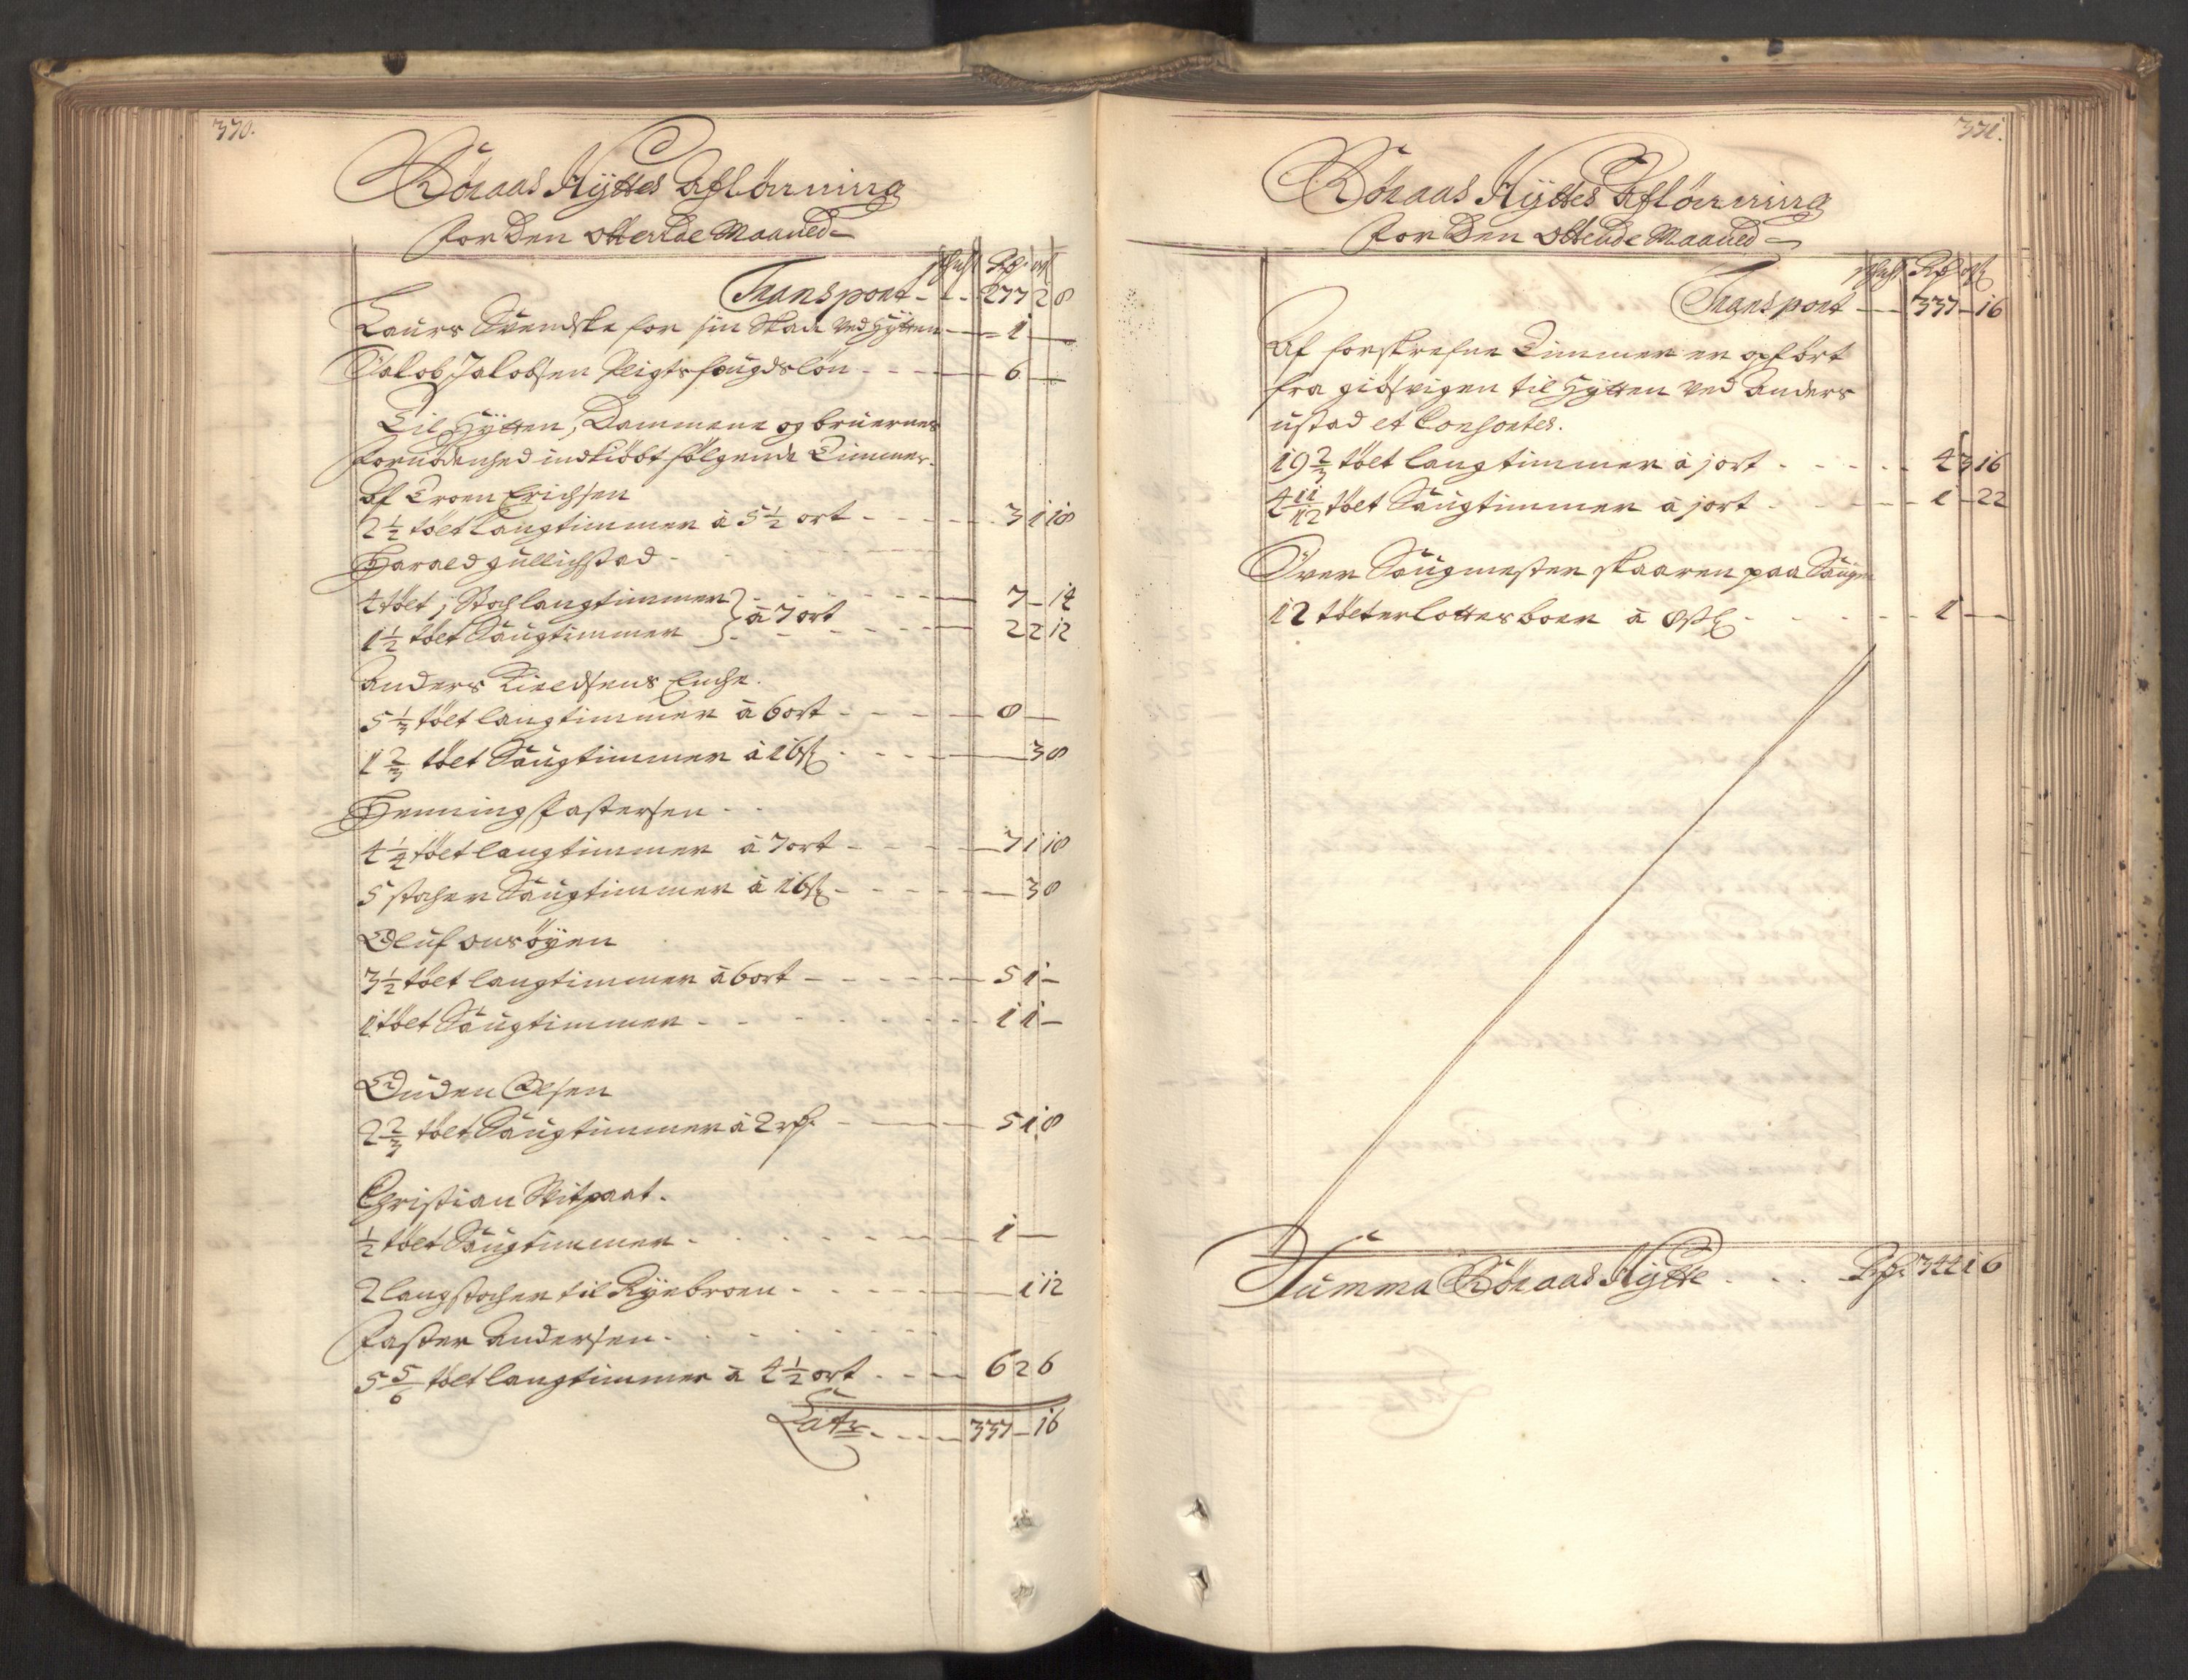 370.
Röraas Hyttes Aflönning
for den ottende Maaned
Rdr ort
Transport 277 2 8
Laurs Svendske for sin Skade ved Hytten 1
Jacob Jacobsen Veigtsfougdslön 6
Til Hytten, Dammene og bruernes
fornödenhed indkiöbt fölgende Timmer.
Af Troen Erichsen
2 1/2 tölt Langtimmer à 5 1/2 ort 3 1 18
Harald gullichstad
4 tölt, 1 Stoch langtimmer } à 7 ort 7 - 14
1 1/2 tölt Saugtimmer } 2 2 12
Anders Kieldsens Enche.
5 1/3 tölt langtimmer à 6 ort 8
1 2/3 tölt Saugtimmer à 16 s 3 8
Henning Fastersen
4 1/4 tölt langtimmer à 7 ort 7 1 18
5 stocher Saugtimmer à 16 s 3 8
Oluf
3 1/2 tölt langtimmer à 6 ort 5 1 -
1 tölt Saugtimmer 1 1 -
Ouden Olsen
2 2/3 tölt Saugtimmer à 2 rdr 5 1 8
Christian
1/2 tölt Saugtimmer 1
2 langstocher til Ryebroen 1 12
Faster Andersen
5 5/6 tölt langtimmer à 4 1/2 ort 6 2 6
Latr 337 - 16
371.
Röraas Hyttes Aflönning
for den ottende Maaned
Rdr ort s
Transport 337 - 16
Af forskrefne Timmer er opfört
fra giösvigen til Hytten ved Anders
ustad et Consortes.
19 2/3 tölt langtimmer à 1 ort 4 3 16
4 11/12 tölt Saugtimmer à 1 ort 1 - 22
Över Saugmester skaaren paa Saugen
12 tölter lottesboer à 8 s 1
Summa Röraas Hytte Rdr 344 1 6